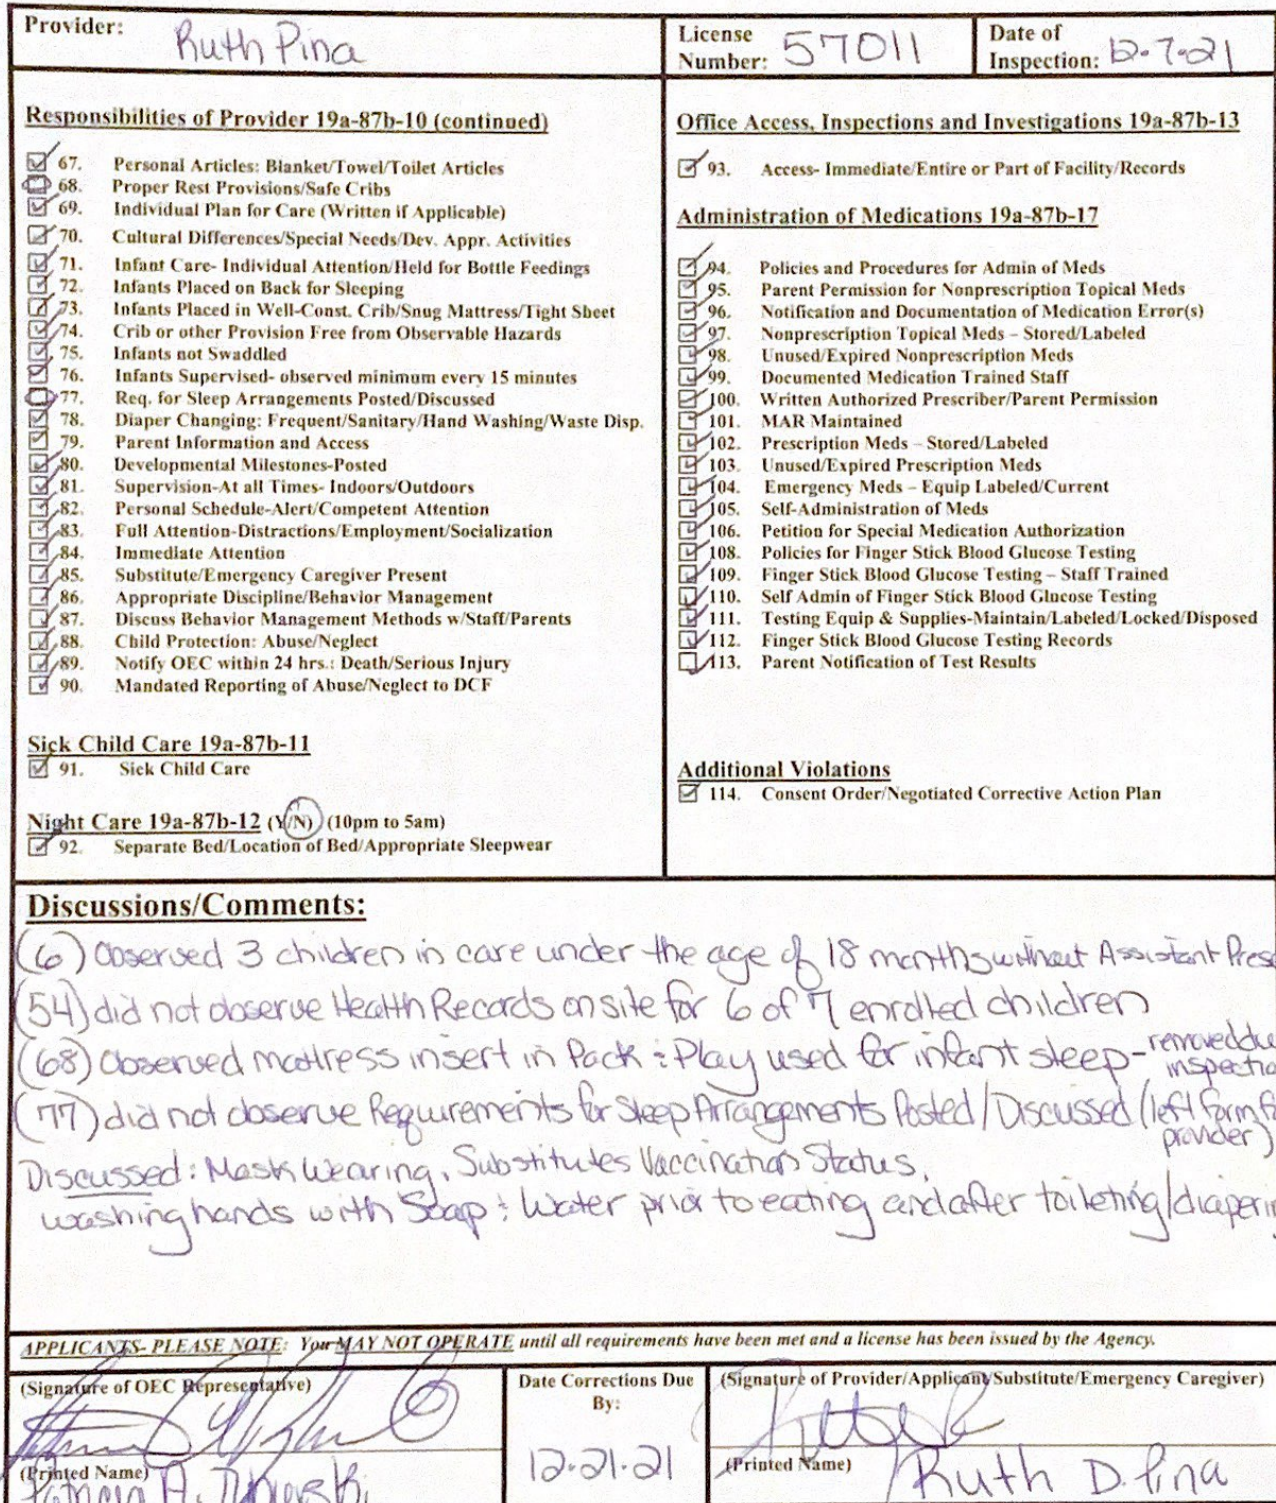 Provider: Ruth Pina
License Number: 57011
Date of Inspection: 12-7-21
Responsibilities of Provider 19a-87b-10 (continued)
67. Personal Articles: Blanket/Towel/Toilet Articles
68. Proper Rest Provisions/Safe Cribs
69. Individual Plan for Care (Written if Applicable)
70. Cultural Differences/Special Needs/Dev. Appr. Activities
71. Infant Care- Individual Attention/Held for Bottle Feedings
72. Infants Placed on Back for Sleeping
73. Infants Placed in Well-Const. Crib/Snug Mattress/Tight Sheet
74. Crib or other Provision Free from Observable Hazards
75. Infants not Swaddled
76. Infants Supervised- observed minimum every 15 minutes
77. Req. for Sleep Arrangements Posted/Discussed
78. Diaper Changing: Frequent/Sanitary/Hand Washing/Waste Disp.
79. Parent Information and Access
80. Developmental Milestones-Posted
81. Supervision-At all Times- Indoors/Outdoors
82. Personal Schedule-Alert/Competent Attention
83. Full Attention-Distractions/Employment/Socialization
84. Immediate Attention
85. Substitute/Emergency Caregiver Present
86. Appropriate Discipline/Behavior Management
87. Discuss Behavior Management Methods w/Staff/Parents
88. Child Protection: Abuse/Neglect
89. Notify OEC within 24 hrs.: Death/Serious Injury
90. Mandated Reporting of Abuse/Neglect to DCF
Sick Child Care 19a-87b-11
91. Sick Child Care
Night Care 19a-87b-12 (Y/N) (10pm to 5am)
92. Separate Bed/Location of Bed/Appropriate Sleepwear
Office Access, Inspections and Investigations 19a-87b-13
93. Access- Immediate/Entire or Part of Facility/Records
Administration of Medications 19a-87b-17
94. Policies and Procedures for Admin of Meds
95. Parent Permission for Nonprescription Topical Meds
96. Notification and Documentation of Medication Error(s)
97. Nonprescription Topical Meds – Stored/Labeled
98. Unused/Expired Nonprescription Meds
99. Documented Medication Trained Staff
100. Written Authorized Prescriber/Parent Permission
101. MAR Maintained
102. Prescription Meds – Stored/Labeled
103. Unused/Expired Prescription Meds
104. Emergency Meds – Equip Labeled/Current
105. Self-Administration of Meds
106. Petition for Special Medication Authorization
108. Policies for Finger Stick Blood Glucose Testing
109. Finger Stick Blood Glucose Testing – Staff Trained
110. Self Admin of Finger Stick Blood Glucose Testing
111. Testing Equip & Supplies-Maintain/Labeled/Locked/Disposed
112. Finger Stick Blood Glucose Testing Records
113. Parent Notification of Test Results
Additional Violations
114. Consent Order/Negotiated Corrective Action Plan
Discussions/Comments:
(6) Observed 3 children in care under the age of 18 months without Assistant Prese
(54) did not observe Health Records on site for 6 of 7 enrolled children
(68) Observed mattress insert in Pack & Play used for infant sleep - removed du
inspectio
(77) did not observe Requirements for Sleep Arrangements Posted/Discussed (left form f
provider)
Discussed: Mask Wearing, Substitutes Vaccination Status,
washing hands with Soap & Water prior to eating and after toileting/diaperin
APPLICANTS- PLEASE NOTE: You MAY NOT OPERATE until all requirements have been met and a license has been issued by the Agency.
(Signature of OEC Representative)
(Printed Name)
Patricia A.
Date Corrections Due By:
12-21-21
(Signature of Provider/Applicant/Substitute/Emergency Caregiver)
(Printed Name) Ruth D. Pina